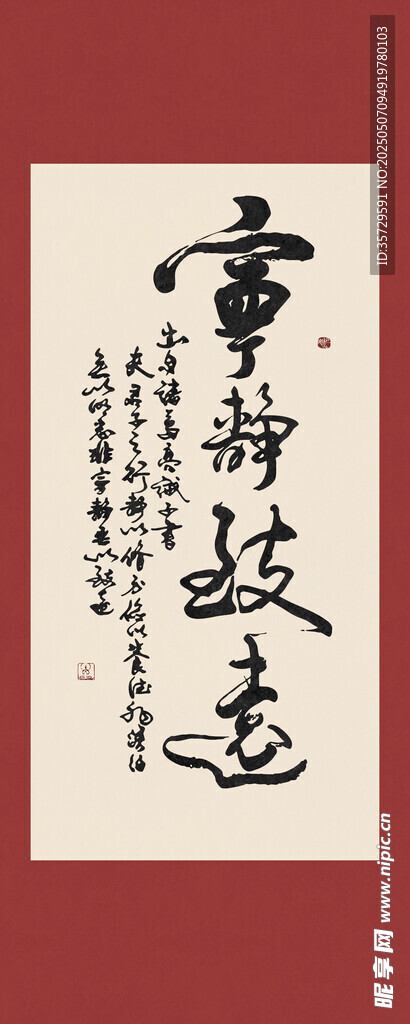 寧靜致遠
出自諸葛亮誡子書
夫君子之行靜以修身儉以養德非淡泊
無以明志非寧靜無以致遠
ID:35729591 NO:20250507094919780103
昵享网 www.nipic.cn